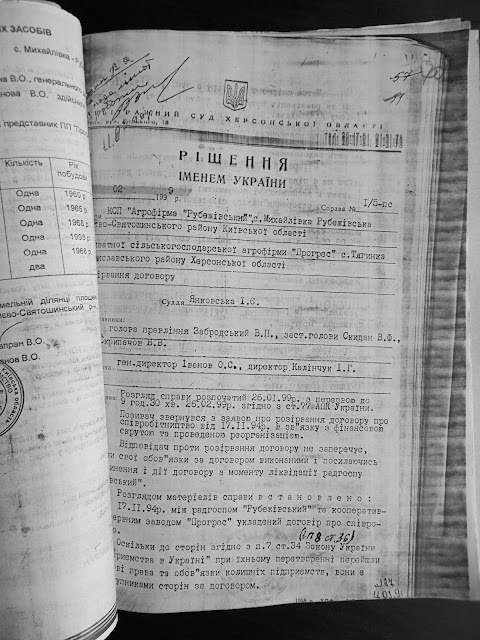 Х ЗАСОБІВ
с. Михайлівка - Р
на В.О., генерального
нова В.О, здійсн
представник ПП "Прог
Кількість
Рік побудо
Одна
1960 р.
Одна
1965 р.
Одна
1968 р.
Одна
1998 р.
Одна
1968
два
емельній ділянці площею
єво-Святошинський р-н
апран В.О.
анов В.О.
АРБІТРАЖНИЙ СУД ХЕРСОНСЬКОЇ ОБЛАСТІ
РІШЕННЯ
ІМЕНЕМ УКРАЇНИ
02. 9
199 р.
Справа № 1/5-пс
КСП "Агрофірма "Рубежівський", с.Михайлівка Рубежівська
во-Святошинського району Київської області
ватної сільськогосподарської агрофірми "Прогрес" с.Тягинка
риславського району Херсонської області
ірвання договору
Суддя Янковська І.Є.
голова правління Забродський В.П., заст.голови Скидан В.Ф.,
Скрипачов В.В.
ген.директор Іванов О.С., директор Калінчук І.Г.
Розгляд справи розпочатий 26.01.99р. з перервою до
9 год.30 хв. 26.02.99р. згідно з ст.77 АПК України.
Позивач звернувся з заявою про розірвання договору про
співробітництво від 17.11.94р. в зв"язку з фінансовою
скрутою та проведеною реорганізацією.
Відповідач проти розірвання договору не заперечує,
чи свої обов"язки за договором виконаними і посилаючись
инення і дії договору з моменту ліквідації радгоспу
івський".
Розглядом матеріалів справи в с т а н о в л е н о :
17.11.94р. між радгоспом "Рубежівський" та кооператив-
ервним заводом "Прогрес" укладений договір про співро-
о.
(п 8 ст.36)
Оскільки до сторін згідно з п.7 ст.34 Закону України
приємства в Україні" при їхньому перетворенні перейшли
ві права та обов"язки колишніх підприємств, вони є
тупниками сторін за договором.